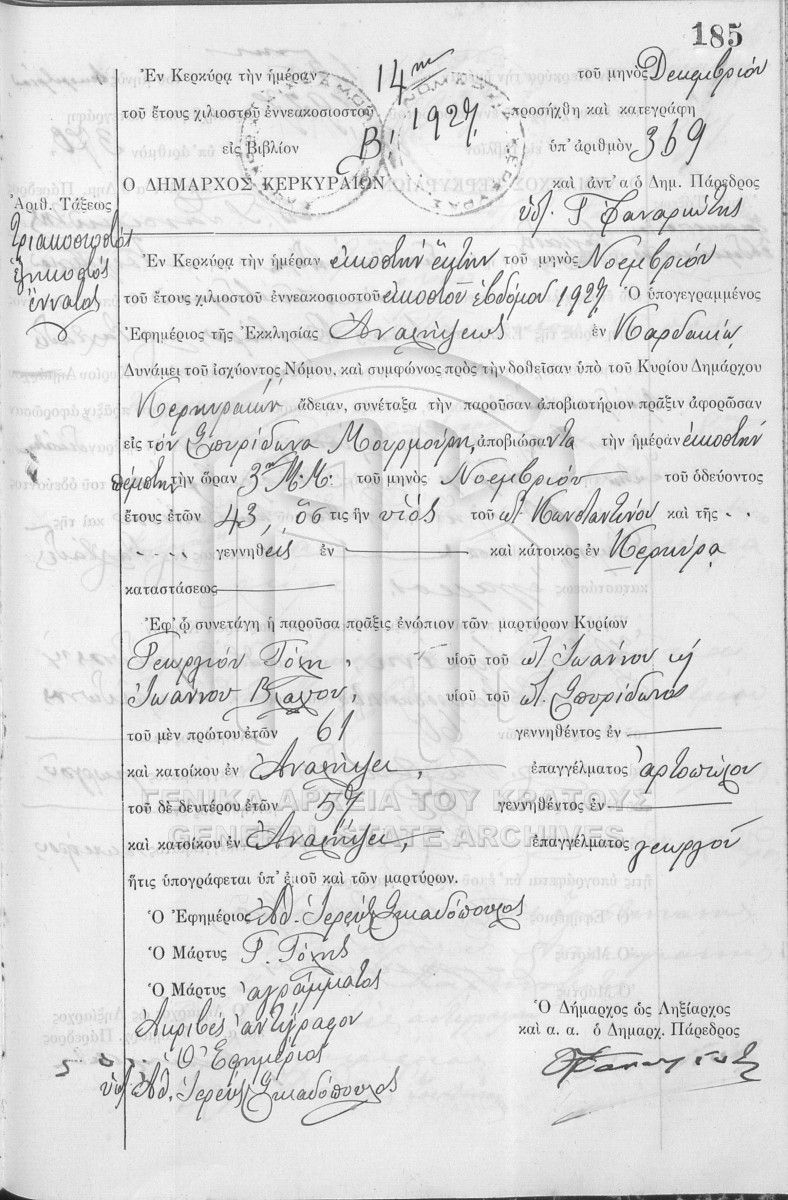 185
Ἐν Κερκύρᾳ τὴν ἡμέραν 14ην τοῦ μηνὸς Δεκεμβρίου
τοῦ ἔτους χιλιοστοῦ ἐννεακοσιοστοῦ 1927, προσήχθη καὶ κατεγράφη
εἰς Βιβλίον Β! ὑπ' ἀριθμὸν 369
Ο ΔΗΜΑΡΧΟΣ ΚΕΡΚΥΡΑΙΩΝ καὶ ἀντ' α ὁ Δημ. Πάρεδρος
Γ Φαναριώτης
Ἀριθ. Τάξεως
Τριακοσιοστός
ἑξηκοστός
ἔννατος
Ἐν Κερκύρᾳ τὴν ἡμέραν εἰκοστὴν ἕκτην τοῦ μηνὸς Νοεμβρίου
τοῦ ἔτους χιλιοστοῦ ἐννεακοσιοστοῦ εἰκοστοῦ ἑβδόμου 1927, Ὁ ὑπογεγραμμένος
Ἐφημέριος τῆς Ἐκκλησίας Ἀναλήψεως ἐν Καρδακίῳ
Δυνάμει τοῦ ἰσχύοντος Νόμου, καὶ συμφώνως πρὸς τὴν δοθεῖσαν ὑπὸ τοῦ Κυρίου Δημάρχου
Κερκυραίων ἄδειαν, συνέταξα τὴν παροῦσαν ἀποβιωτήριον πρᾶξιν ἀφορῶσαν
εἰς τὸν Σπυρίδωνα Μουρμούρη, ἀποβιώσαντα τὴν ἡμέραν εἰκοστὴν
πέμπτην τὴν ὥραν 3ην Μ.Μ. τοῦ μηνὸς Νοεμβρίου τοῦ ὁδεύοντος
ἔτους ἐτῶν 43, ὅστις ἦν υἱὸς τοῦ Κωνσταντίνου καὶ τῆς . .
. . . . γεννηθεὶς ἐν — καὶ κάτοικος ἐν Κερκύρᾳ
καταστάσεως —
Ἐφ' ᾧ συνετάγη ἡ παροῦσα πρᾶξις ἐνώπιον τῶν μαρτύρων Κυρίων
Γεωργίου Γόχη, υἱοῦ τοῦ Ἰωάννου
Ἰωάννου Βλάχου, υἱοῦ τοῦ Σπυρίδωνος
τοῦ μὲν πρώτου ἐτῶν 61 γεννηθέντος ἐν —
καὶ κατοίκου ἐν Ἀναλήψει, ἐπαγγέλματος ἀρτοπώλου
τοῦ δὲ δευτέρου ἐτῶν 57 γεννηθέντος ἐν —
καὶ κατοίκου ἐν Ἀναλήψει, ἐπαγγέλματος γεωργοῦ
ΓΕΝΙΚΑ ΑΡΧΕΙΑ ΤΟΥ ΚΡΑΤΟΥΣ
GENERAL STATE ARCHIVES
ἥτις ὑπογράφεται ὑπ' ἐμοῦ καὶ τῶν μαρτύρων.
Ὁ Ἐφημέριος Ἀθ. Ἱερεὺς Σικαδόπουλος
Ὁ Μάρτυς Γ. Γόχης
Ὁ Μάρτυς ἀγράμματος
Ἀκριβὲς ἀντίγραφον
Ὁ Ἐφημέριος
Ἀθ. Ἱερεὺς Σικαδόπουλος
Ὁ Δήμαρχος ὡς Ληξίαρχος
καὶ α. α. ὁ Δημαρχ. Πάρεδρος